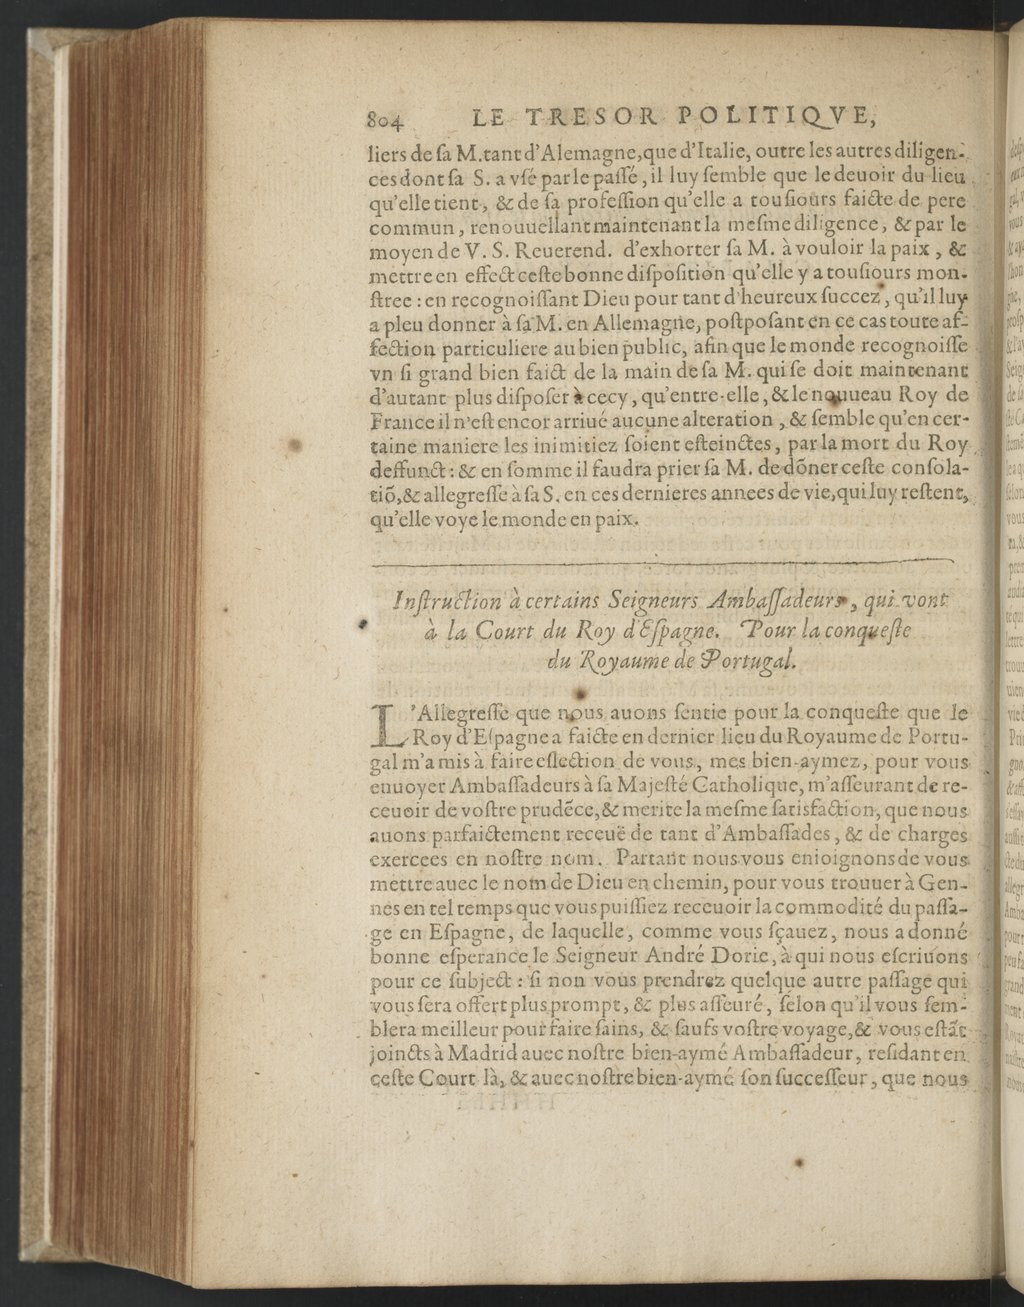 804 LE TRESOR POLITIQVE,
liers de ſa M. tant d'Alemagne, que d'Italie, outre les autres diligen-
ces dont ſa S. a vſé par le paſſé, il luy ſemble que le deuoir du lieu
qu'elle tient, & de ſa profeſſion qu'elle a touſiours faicte de pere
commun, renouuellant maintenant la meſme diligence, & par le
moyen de V. S. Reuerend. d'exhorter ſa M. à vouloir la paix, &
mettre en effect ceſte bonne diſpoſition qu'elle y a touſiours mon-
ſtree : en recognoiſſant Dieu pour tant d'heureux ſuccez, qu'il luy
a pleu donner à ſa M. en Allemagne, poſtpoſant en ce cas toute af-
fection particuliere au bien public, afin que le monde recognoiſſe
vn ſi grand bien faict de la main de ſa M. qui ſe doit maintenant
d'autant plus diſpoſer à cecy, qu'entre-elle, & le nouueau Roy de
France il n'eſt encor arriué aucune alteration, & ſemble qu'en cer-
taine maniere les inimitiez ſoient eſteinctes, par la mort du Roy
deffunct : & en ſomme il faudra prier ſa M. de dõner ceſte conſola-
tiõ, & allegreſſe à ſa S. en ces dernieres annees de vie, qui luy reſtent,
qu'elle voye le monde en paix.
Inſtruction à certains Seigneurs Ambaſſadeurs, qui vont
à la Court du Roy d'Eſpagne. Pour la conqueſte
du Royaume de Portugal.
L'Allegreſſe que nous auons ſentie pour la conqueſte que le
Roy d'Eſpagne a faicte en dernier lieu du Royaume de Portu-
gal m'a mis à faire eſlection de vous, mes bien-aymez, pour vous
enuoyer Ambaſſadeurs à ſa Majeſté Catholique, m'aſſeurant de re-
ceuoir de voſtre prudẽce, & merite la meſme ſatisfaction, que nous
auons parfaictement receuë de tant d'Ambaſſades, & de charges
exercees en noſtre nom. Partant nous vous enioignons de vous
mettre auec le nom de Dieu en chemin, pour vous trouuer à Gen-
nes en tel temps que vous puiſſiez receuoir la commodité du paſſa-
ge en Eſpagne, de laquelle, comme vous ſçauez, nous a donné
bonne eſperance le Seigneur André Dorie, à qui nous eſcriuons
pour ce ſubject : ſi non vous prendrez quelque autre paſſage qui
vous ſera offert plus prompt, & plus aſſeuré, ſelon qu'il vous ſem-
blera meilleur pour faire ſains, & ſaufs voſtre voyage, & vous eſtãt
joincts à Madrid auec noſtre bien-aymé Ambaſſadeur, reſidant en
ceſte Court là, & auec noſtre bien-aymé ſon ſucceſſeur, que nous